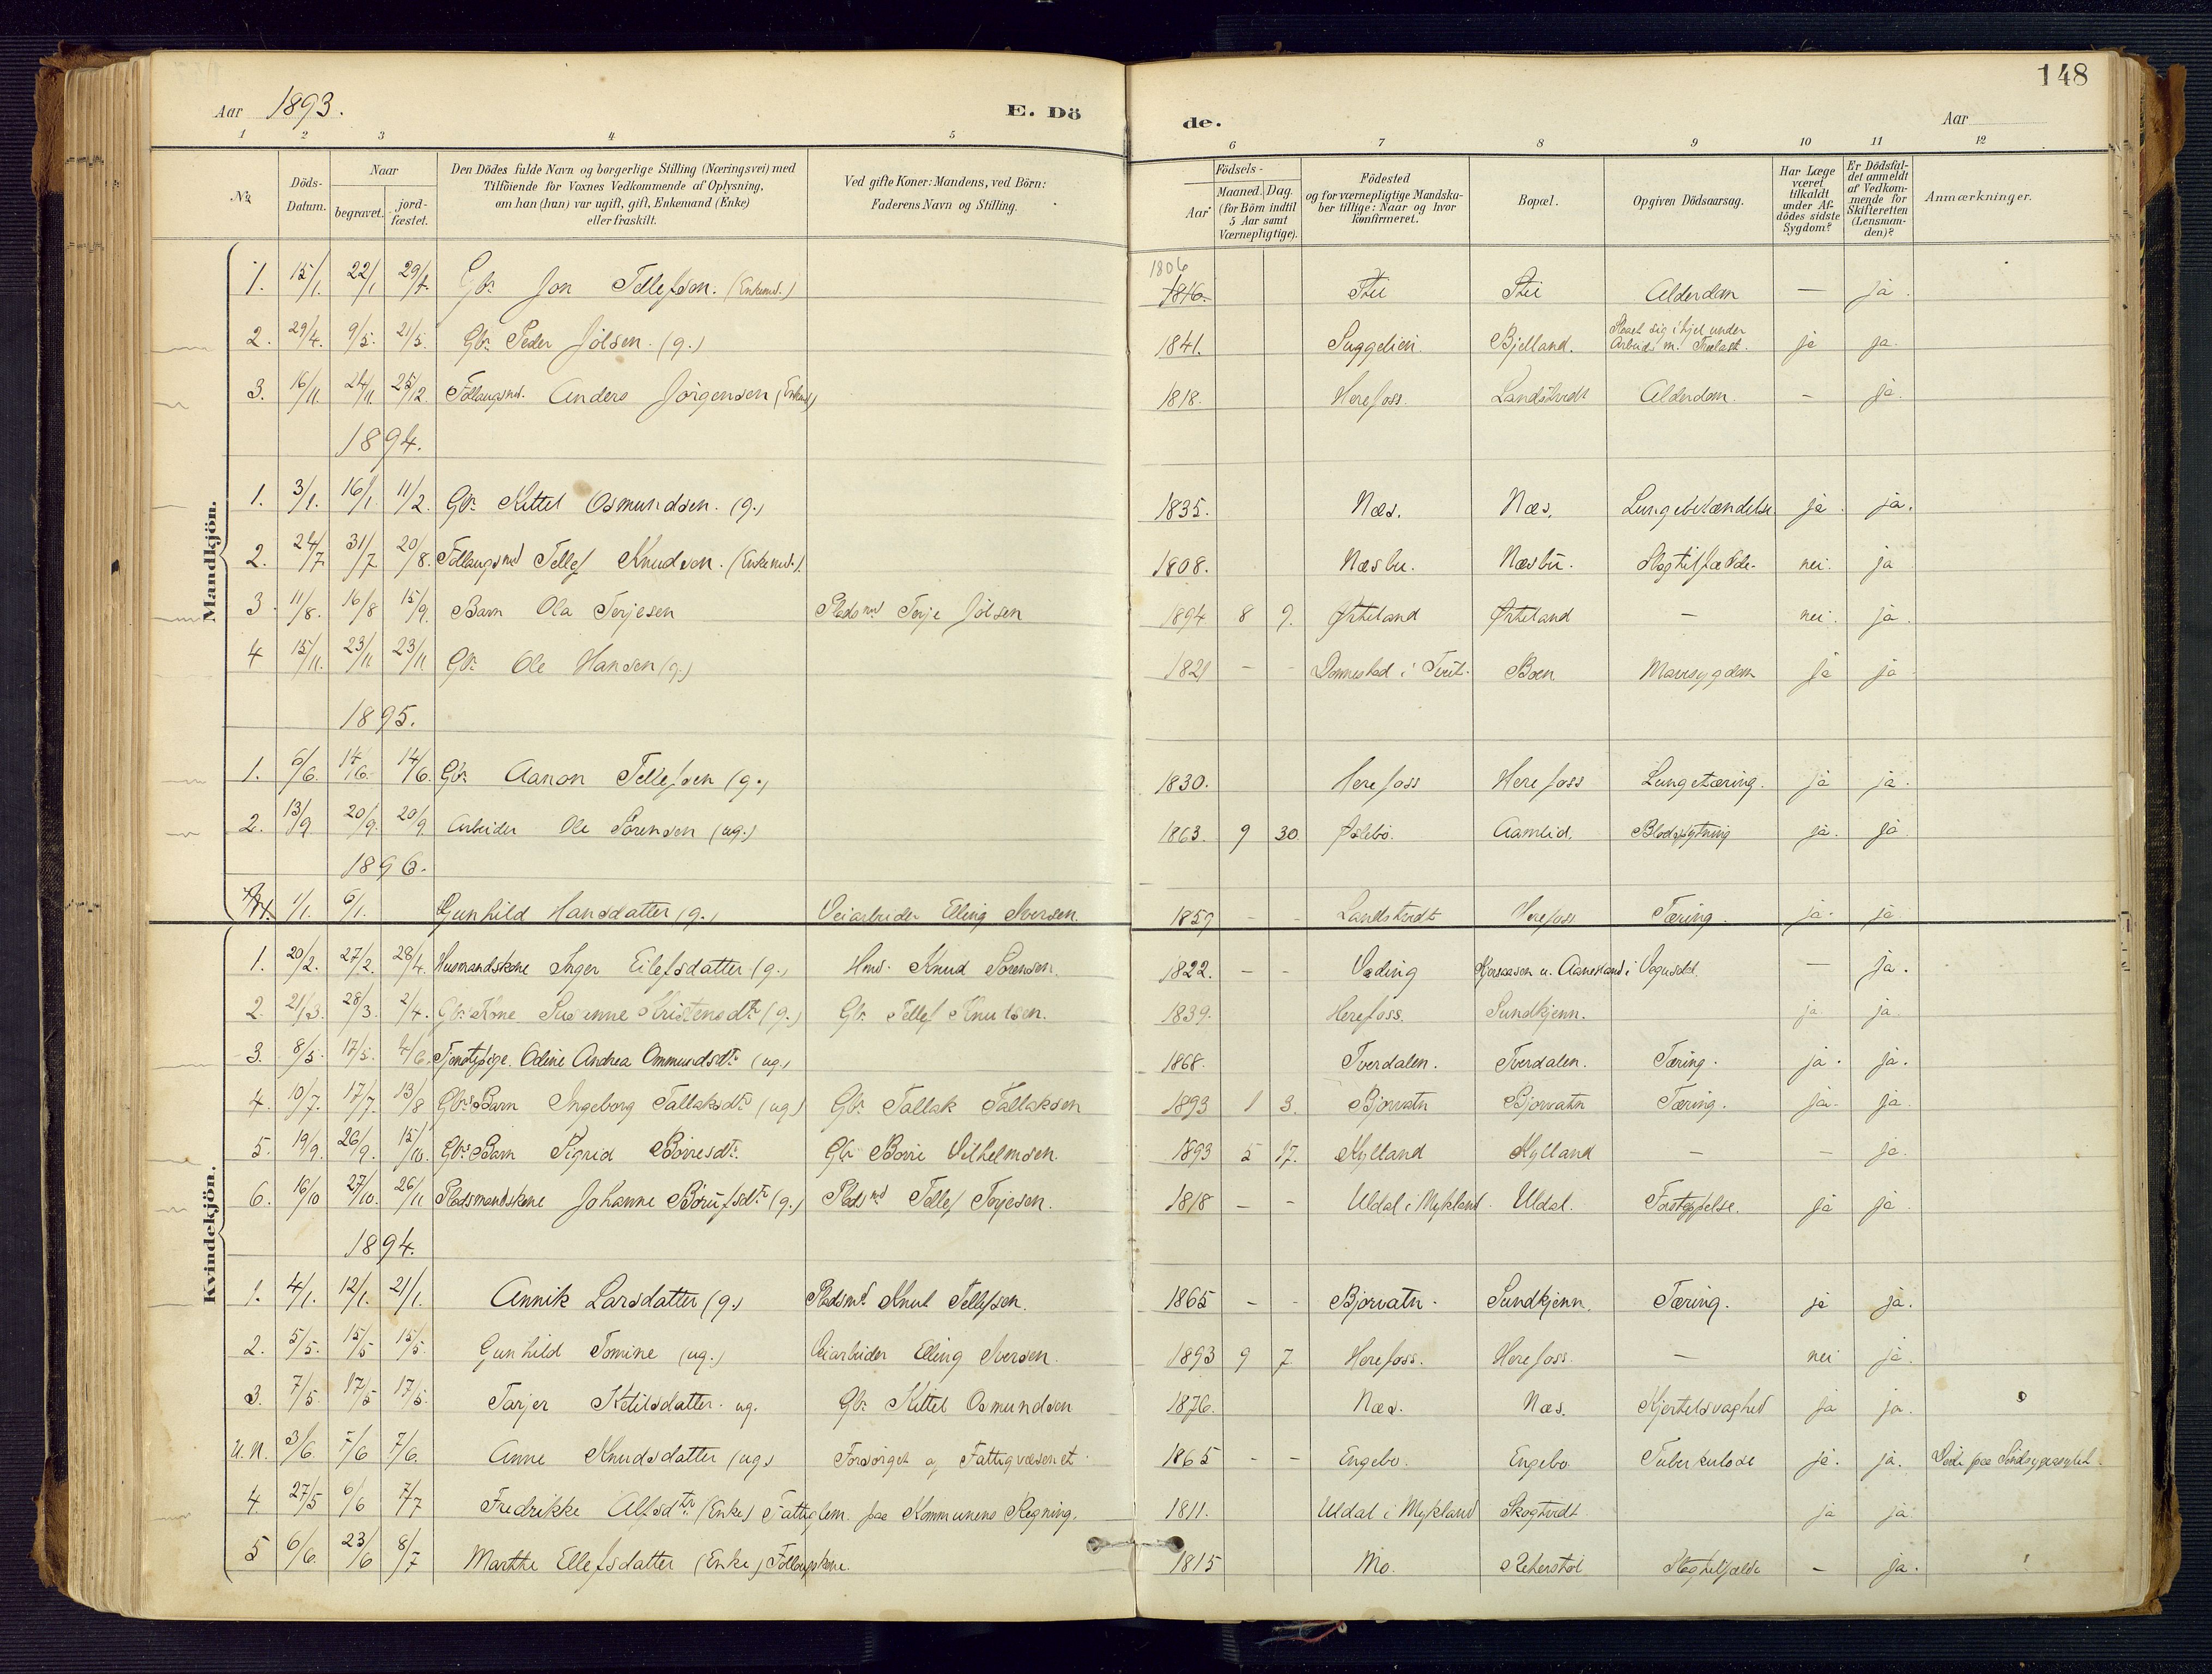 148
Aar 1893. E. Dö de. Aar
1 2 3 4 5 6 7 8 9 10 11 12
No.
Döds-Datum.
Naar
begravet.
jord-fæstet.
Den Dödes fulde Navn og borgerlige Stilling (Næringsvei) med
Tilföiende for Voxnes Vedkommende af Oplysning,
om han (hun) var ugift, gift, Enkemand (Enke)
eller fraskilt.
Ved gifte Koner: Mandens, ved Börn:
Faderens Navn og Stilling.
Födsels-
Aar
Maaned. Dag.
(for Börn indtil
5 Aar samt
Værnepligtige).
Födested
og for værnepligtige Mandska-
ber tillige: Naar og hvor
konfirmeret.
Bopæl.
Opgiven Dödsaarsag.
Har Læge
været
tilkaldt
under Af-
dödes sidste
Sygdom?
Er Dödsfal-
det anmeldt
af Vedkom-
mende for
Skifteretten
(Lensman-
den)?
Anmærkninger.
Mandkjön.
1. 15/1. 22/1 Gbr. Jon Tellefsen. (Enkemd.) 1806 1816. Alderdom — ja.
2. 29/4. 9/5. 21/5. Gbr. Peder Jölsen. (g.) 1841. Bjelland. sig ihjel under Arbeide m. ja ja.
3. 16/11. 24/11. Anders Jörgensen 1818. Herefoss. Landstvedt Alderdom. - ja.
1894.
1. 3/1. 16/1. 11/2. Gbr. Kittel Osmundsen. (g.) 1835. Næs. Næs. Lungebetændelse ja. ja.
2. 24/7 31/7 20/8. Tellef Knudsen. (Enkemd.) 1808. Næsbu. Næsbu. Slagtilfælde. nei. ja
3. 11/8. 16/8 15/9. Barn Ola Terjesen Pladsmd. Terje Jölsen 1894 8 9. — nei. ja.
4 15/11. 23/11 23/11 Gbr. Ole Hansen (g.) 1821 - - Boen Mavesygdom ja ja
1895.
1. 6/6. 14/6. 14/6. Gbr. Aanon Tellefsen (g.) 1830. Herefoss Herefoss Lungetæring. ja ja.
2. 13/9 20/9. 20/9. Arbeider Ole Sörensen (ug.) 1863. 9 30 Aamlid. Blodspytning ja. ja
1896.
1/1. 6/1. Gunhild Hansdatter (g.) Veiarbeider Elling Iversen. 1859 - - Landstvedt Herefoss Tæring. ja. ja
Kvindekjön.
1. 20/2. 27/2. 28/4. Husmandskone Inger Eilefsdatter (g.) Hmd. Knud Sörensen. 1822. - - Væding i Vegusdal. — ja.
2. 21/3. 28/3. 2/4. Gbr. Kone Susanne Kristensdtr. (g.) Gbr. Tellef Knutsen. 1839. Herefoss. Sundkjenn. ja. ja.
3. 8/5. 17/5. 4/6. Tjenestepige. Odine Andrea Ommundsdtr. (ug.) 1868. Tverdalen. Tverdalen. Tæring. ja. ja.
4. 10/7. 17/7. 13/8 Gbrs Barn Ingeborg Tallaksdtr. (ug.) Gbr. Tallak Tallaksen 1893 1 3. Bjorvatn Bjorvatn Tæring. ja. ja.
5. 19/9. 26/9. 15/10. Gbrs Barn Sigrid Börresdtr. Gbr. Börre Vilhelmsen. 1893 5 17. Kylland Kylland — — ja.
6. 16/10 27/10. 26/11 Pladsmandskone Johanne (g.) Pladsmd Tellef Terjesen. 1818 - - Uldal i Mykland. Uldal. Forstoppelse. ja ja.
1894.
1. 4/1. 12/1. 21/1. Annik Larsdatter (g.) Pladsmd. Knut Tellefsen. 1865 - - Bjorvatn. Sundkjenn. Tæring. ja ja.
2. 5/5. 15/5 15/5. Gunhild Tomine (ug.) Veiarbeider Elling Iversen. 1893 9 7 Herefoss. Herefoss. — nei ja.
3. 7/5. 17/5 17/5. Tarjer Ketilsdatter. ug. Gbr. Kittel Osmundsen 1876. Næs. Næs. Kjertelsvaghed ja ja.
U.N. 3/6. 7/6 7/6. Anne Knudsdatter (ug.) Forsörget af Fattigvæsenet. 1865 - - Engebo. Engebo. Tuberkulose ja. ja. Döde paa Sindsygeasylet.
4. 27/5 6/6 7/7 Fredrikke Alfsdtr. (Enke) Fattiglem. paa Kommunens Regning. 1811. Uldal i Mykland Skogtvedt. ja ja.
5 6/6. 23/6 8/7 Marthe Ellefsdatter (Enke) 1815 Mo. Slagtilfælde - ja.